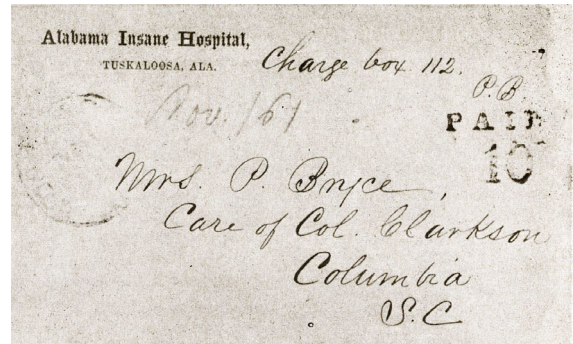 Alabama Insane Hospital,
TUSKALOOSA, ALA.
Charge box 112.
P.B
PAID
10
Nov. /61
Mrs. P. Bryce,
Care of Col. Clarkson
Columbia
S.C